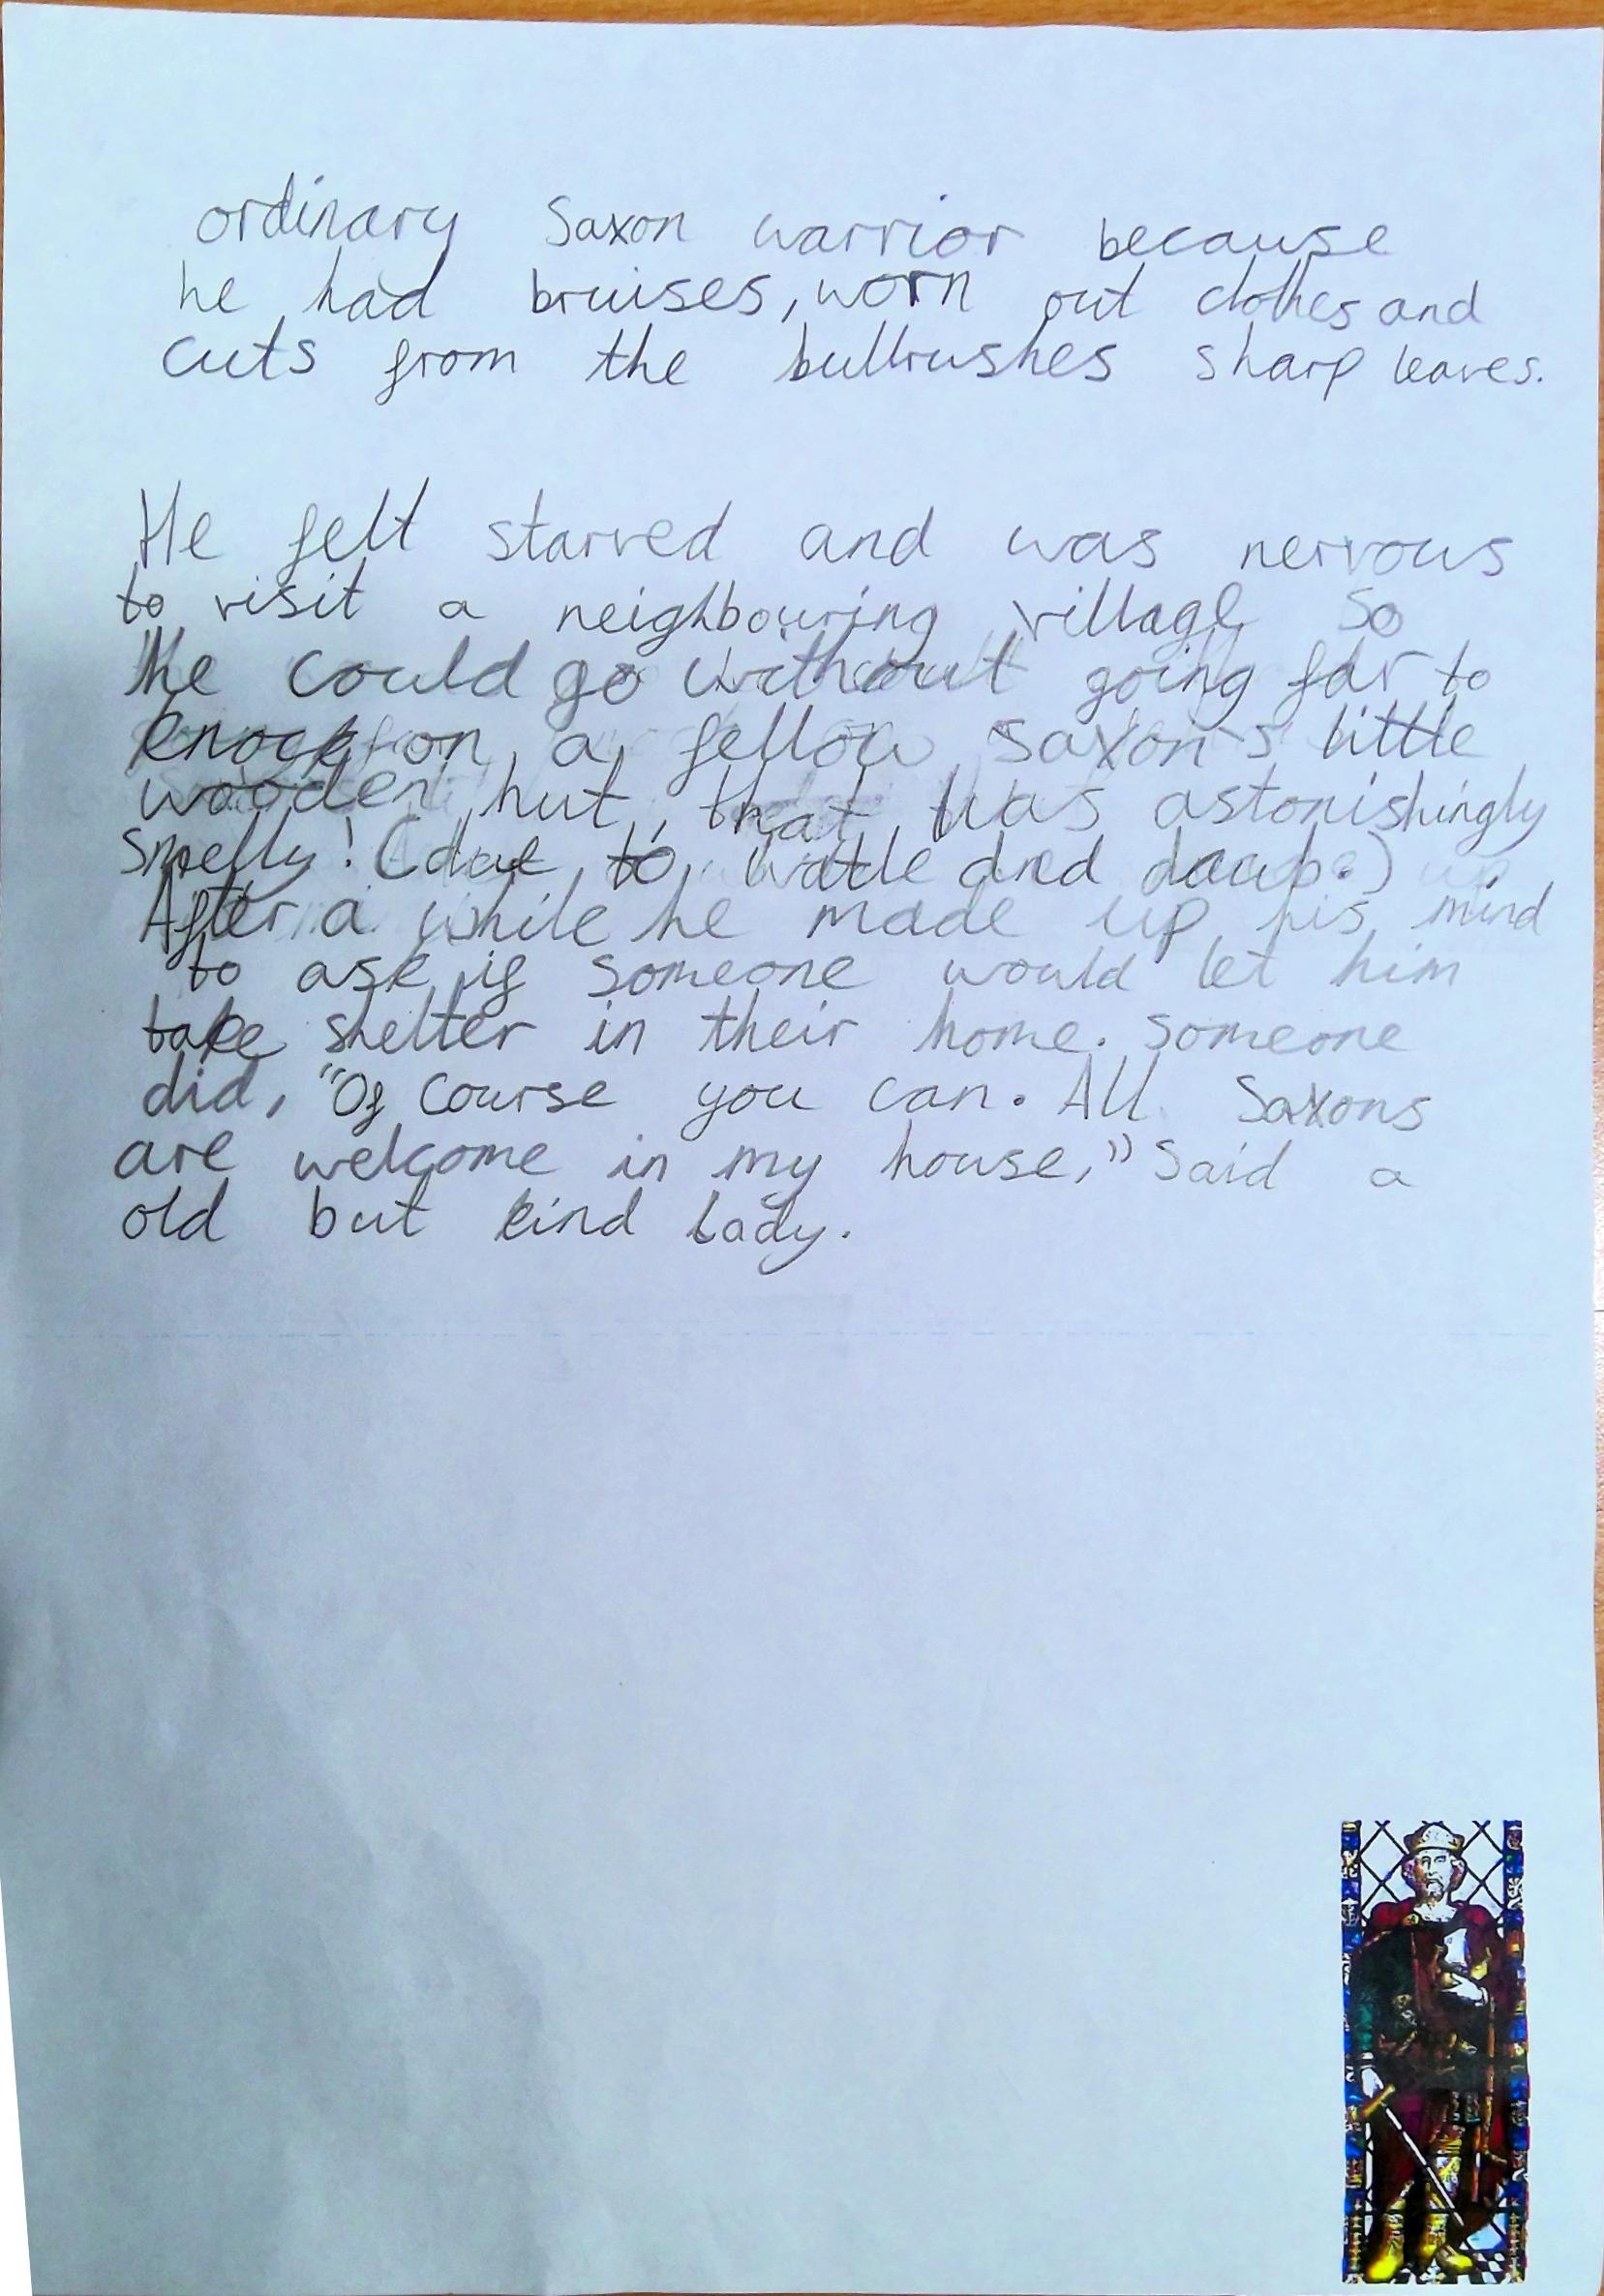 ordinary Saxon warrior because
he had bruises, worn out clothes and
cuts from the bullrushes sharp leaves.
He felt starved and was nervous
to visit a neighbouring village so
he could go without going far to
knock on a fellow saxon's little
wooden hut, that was astonishingly
smelly! (due to wattle and daub.)
After a while he made up his mind
to ask if someone would let him
take shelter in their home. Someone
did, "Of Course you can. All Saxons
are welcome in my house," Said a
old but kind lady.